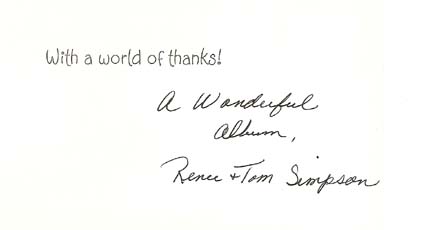 With a world of thanks!
A Wonderful
album,
Renee + Tom Simpson